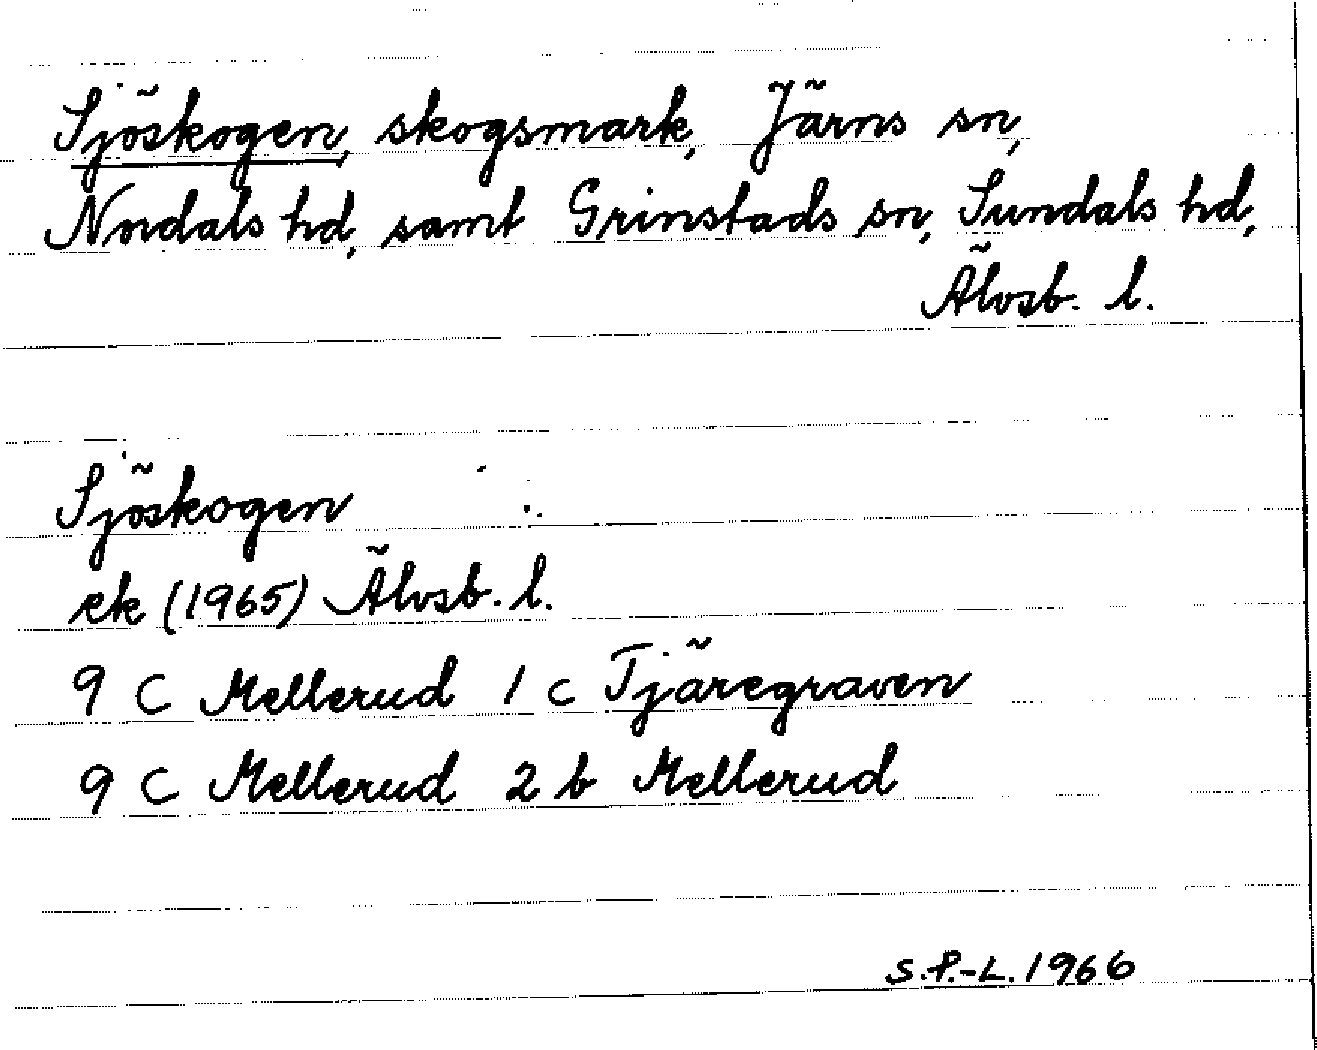 Sjöskogen, skogsmark, Järns sn,
Nordals hd, samt Grinstads sn, Sundals hd,
Älvsb. l.
Sjöskogen
ek (1965) Älvsb. l.
9 C Mellerud 1 c Tjäregraven
9 C Mellerud 2 b Mellerud
S.P.-L. 1966